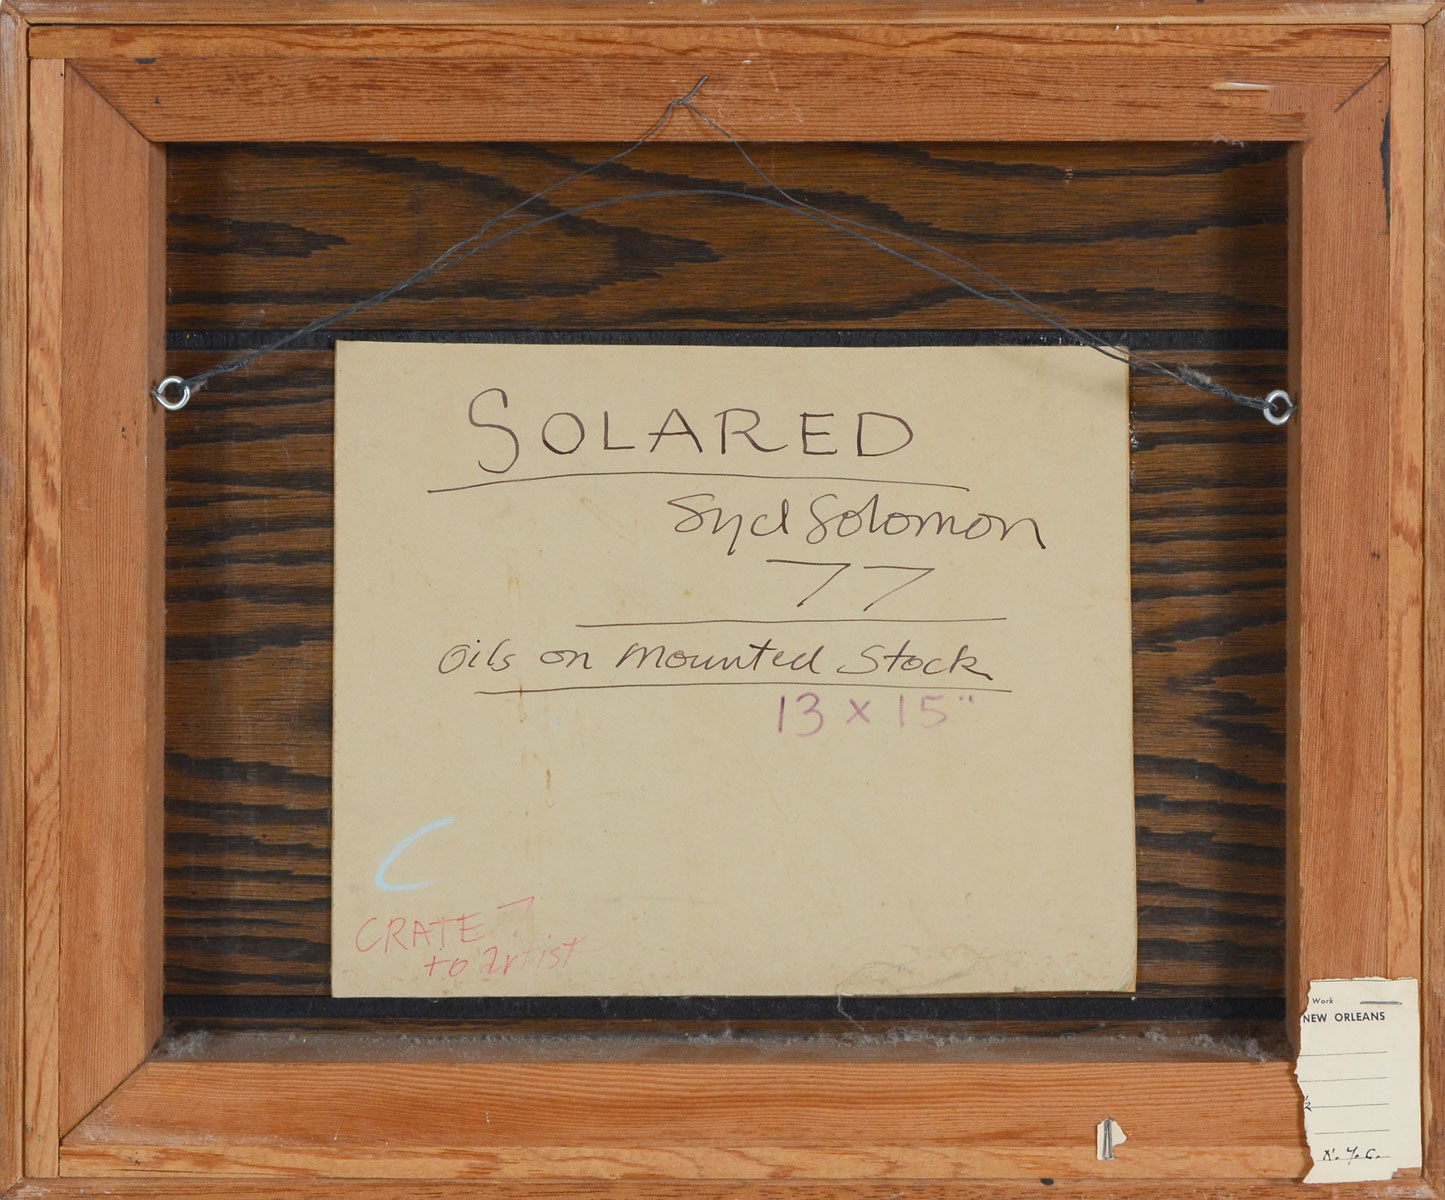 SOLARED
Syd Solomon
77
Oils on Mounted Stock
13 x 15"
C
CRATE 7
to artist
Work
NEW ORLEANS
1/2
N.Y.C.